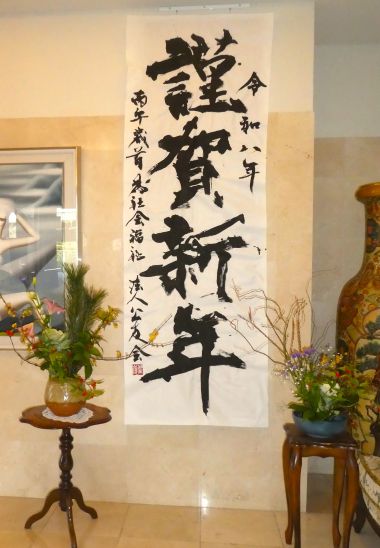 令和八年
謹賀新年
丙午歳首為社会福祉法人公友会